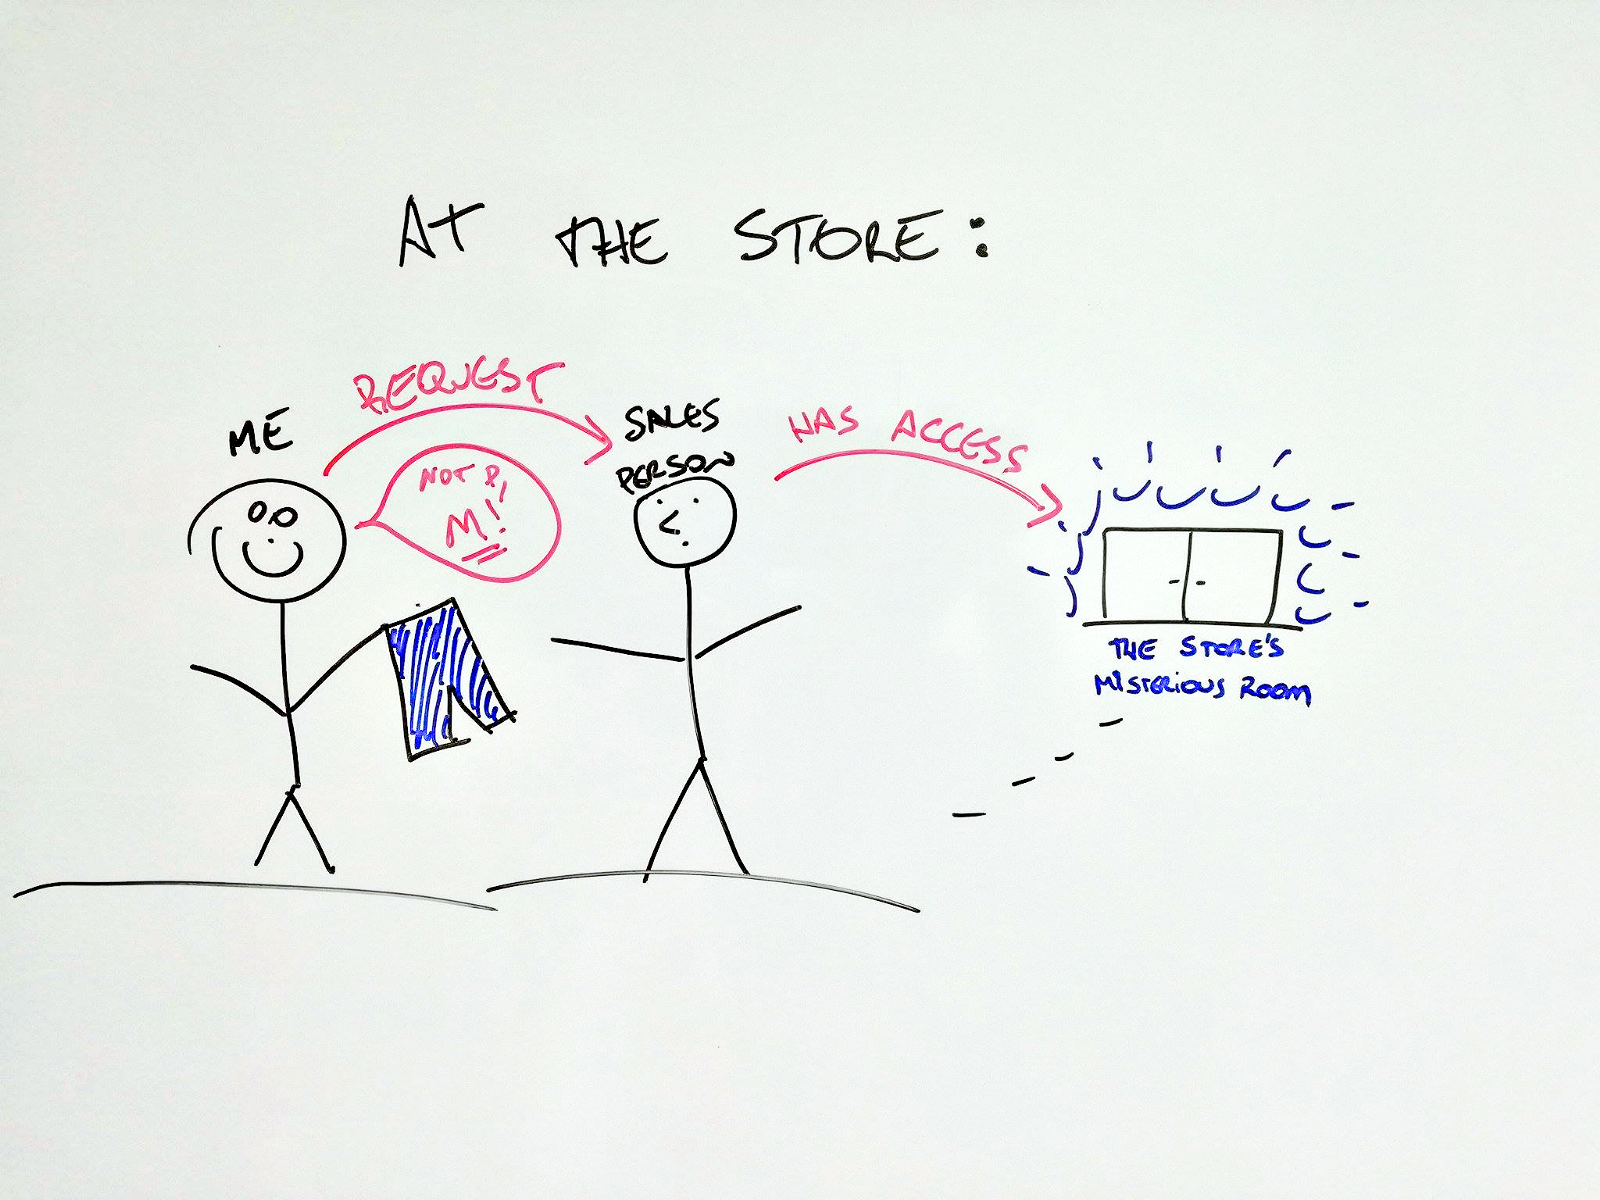 AT THE STORE:
REQUEST
ME
NOT P,
M!
SALES
PERSON
HAS ACCESS
THE STORE'S
MISTERIOUS ROOM